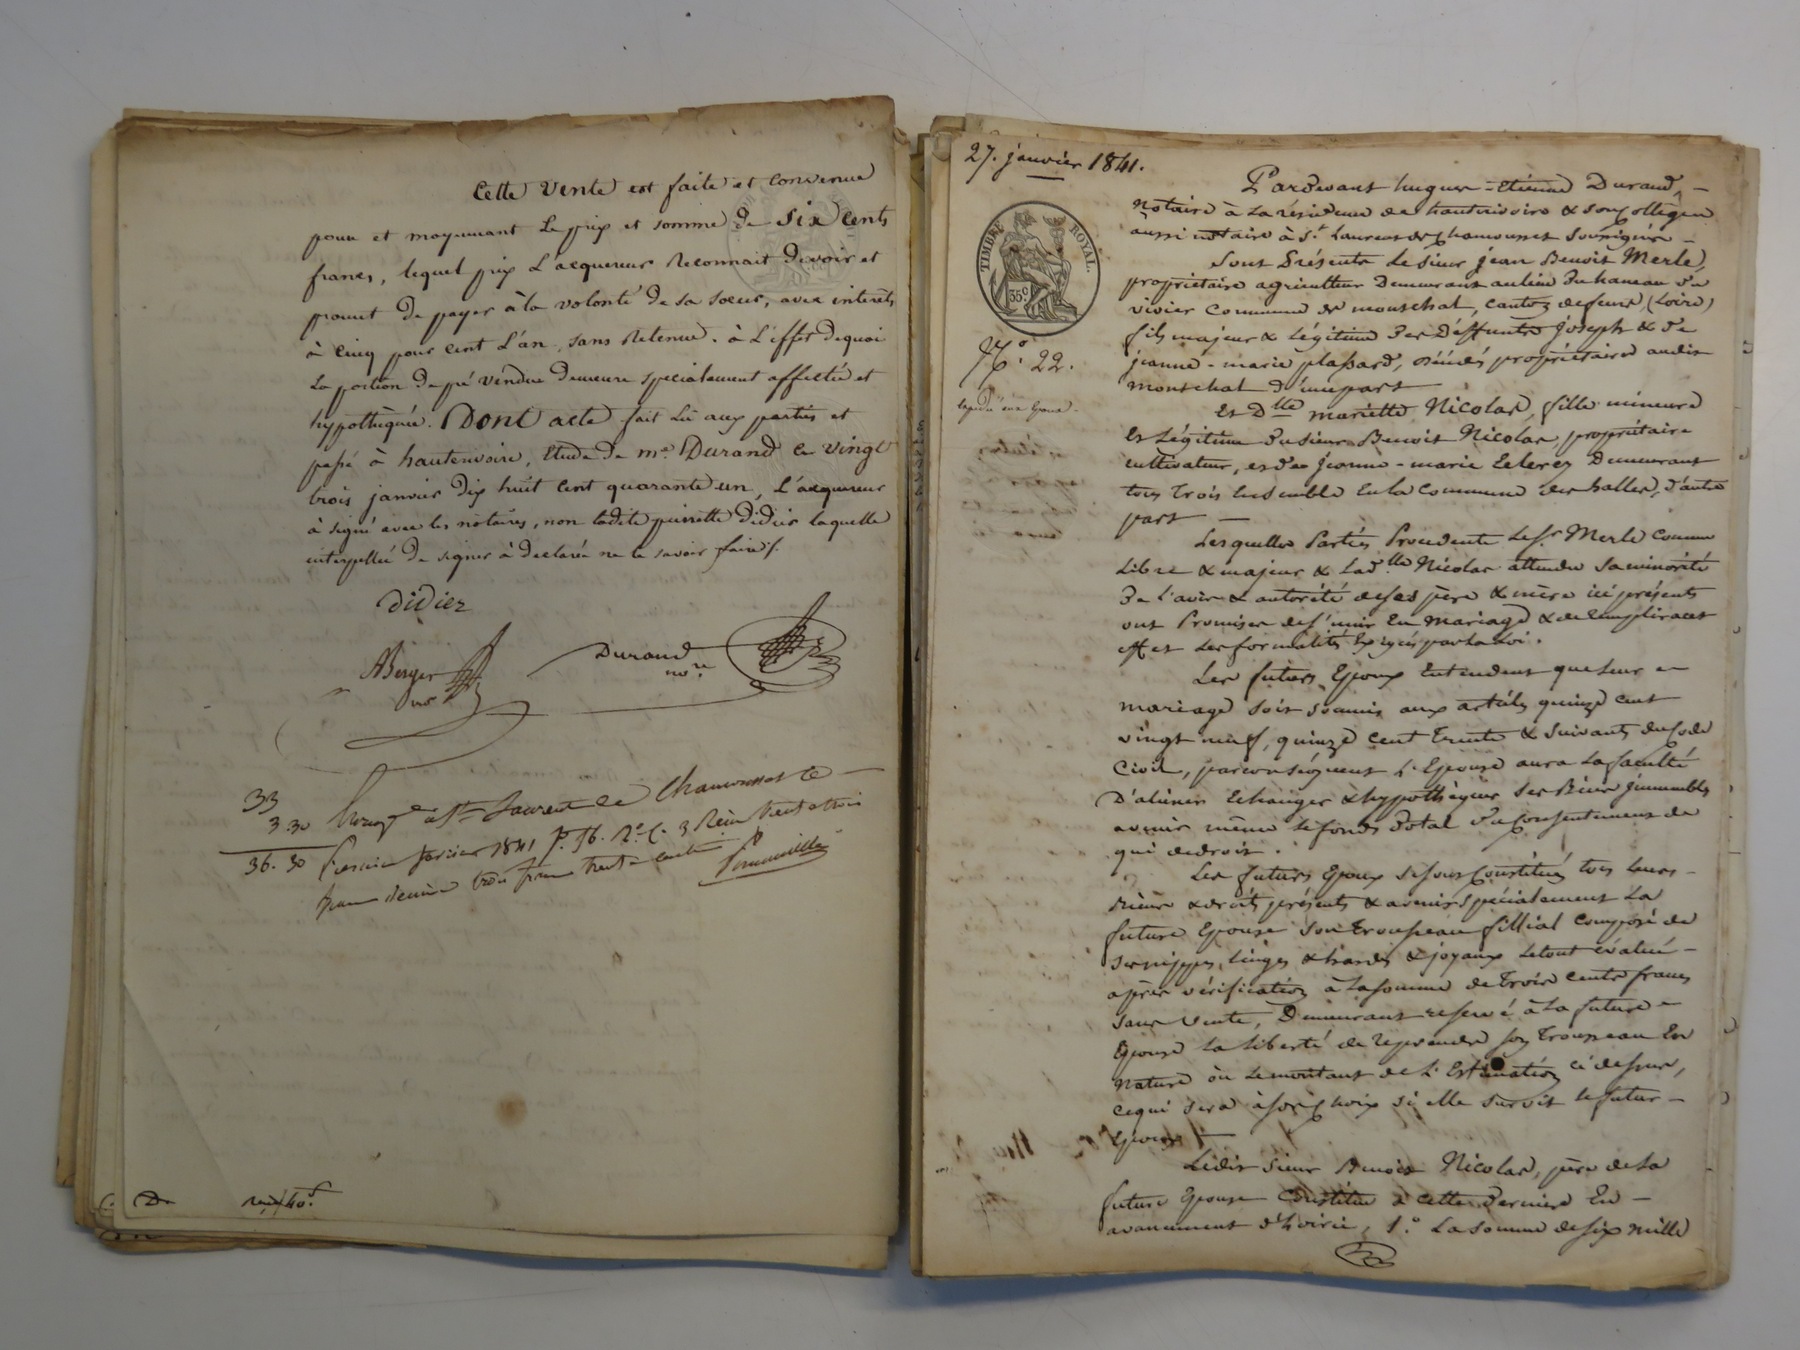 Cette Vente est faite et convenue
pour et moyennant le prix et somme de Six Cents
francs, lequel prix L'acquereur reconnait devoir et
promet de payer à la volonté de sa soeur, avec interêts
à Cinq pour cent L'an, sans Retenue. à L'effet dequoi
La portion de pré vendue demeure specialement affectée et
hypothèquée. Dont acte fait Lu aux parties et
passé à hauterivoire, Etude de me. Durand ce vingt
trois janvier dix huit cent quarante un, L'acquereur
à signé avec les notaires, non ladite pierrette Didier laquelle
interpellée de signer à declaré ne le savoir faire/.
Didier
Berger
Durand
nore.
33
3.30
36.30
à St. Laurent de Chamousset le
fevrier 1841 fo. 76. Ro. C. 3 Reçu trente trois
francs dixième trois francs trente centimes
40.
27. janvier 1841.
TIMBRE ROYAL.
35c.
No. 22.
Pardevant hugues-Etienne Durand,
notaire à La résidence de hauterivoire & son Collègue
aussi notaire à St. Laurent de Chamousset Soussignés
Sont Présents Le sieur jean Benoit Merle,
propriétaire agriculteur Demeurant au lieu Du hameau Du
vivier Commune de montchal, canton de feurs, (Loire)
fils majeur & Légitime Des Déffunts Joseph & De
jeanne-marie plassard, propriétaires audit
Montchal D'une part
Et Dlle mariette Nicolas, fille mineure
Et Légitime Du sieur Benoit Nicolas, propriétaire
cultivateur, et De jeanne-marie Demeurant
tous Trois Ensemble En la Commune des halles, D'autre
part
Lesquelles Parties Procedente Le Sr. Merle Comme
Libre & majeur & La dlle Nicolas attendu Sa minorité
De L'avis & autorité de ses père & mère ici présents
ont Promis de s'unir En mariage & de Remplir à cet
effet Les formalités Exigées par La Loi.
Les futurs Epoux Entendent que Leur
mariage soit soumis aux articles quinze cent
vingt neuf, quinze cent Trente & suivants du Code
Civil, par conséquent L'Epouse aura La faculté
D'aliéner Echanger & hypothèquer Ses Biens jmmeubles
avenir même le fonds Dotal Du Consentement de
qui de droit.
Les futurs Epoux se sont Constitués tous Leurs
Biens & droits présents & avenir spécialement La
future Epouse Son Trousseau fillial composé de
ses nippes, Linges & hardes & joyaux Le tout évalué
après vérification à La somme de Trois cents francs
sans vente, Demeurant reservé à La future
Epouse La Liberté de reprendre son Trousseau En
Nature où Le montant de L'Estimation ci dessus,
ce qui sera à son Choix si elle survit le futur
Epoux
Ledit sieur Benoit Nicolas, père de La
future Epouse Constitue à cette Derniere En
avancement D'hoirie, 1.o La somme de six mille